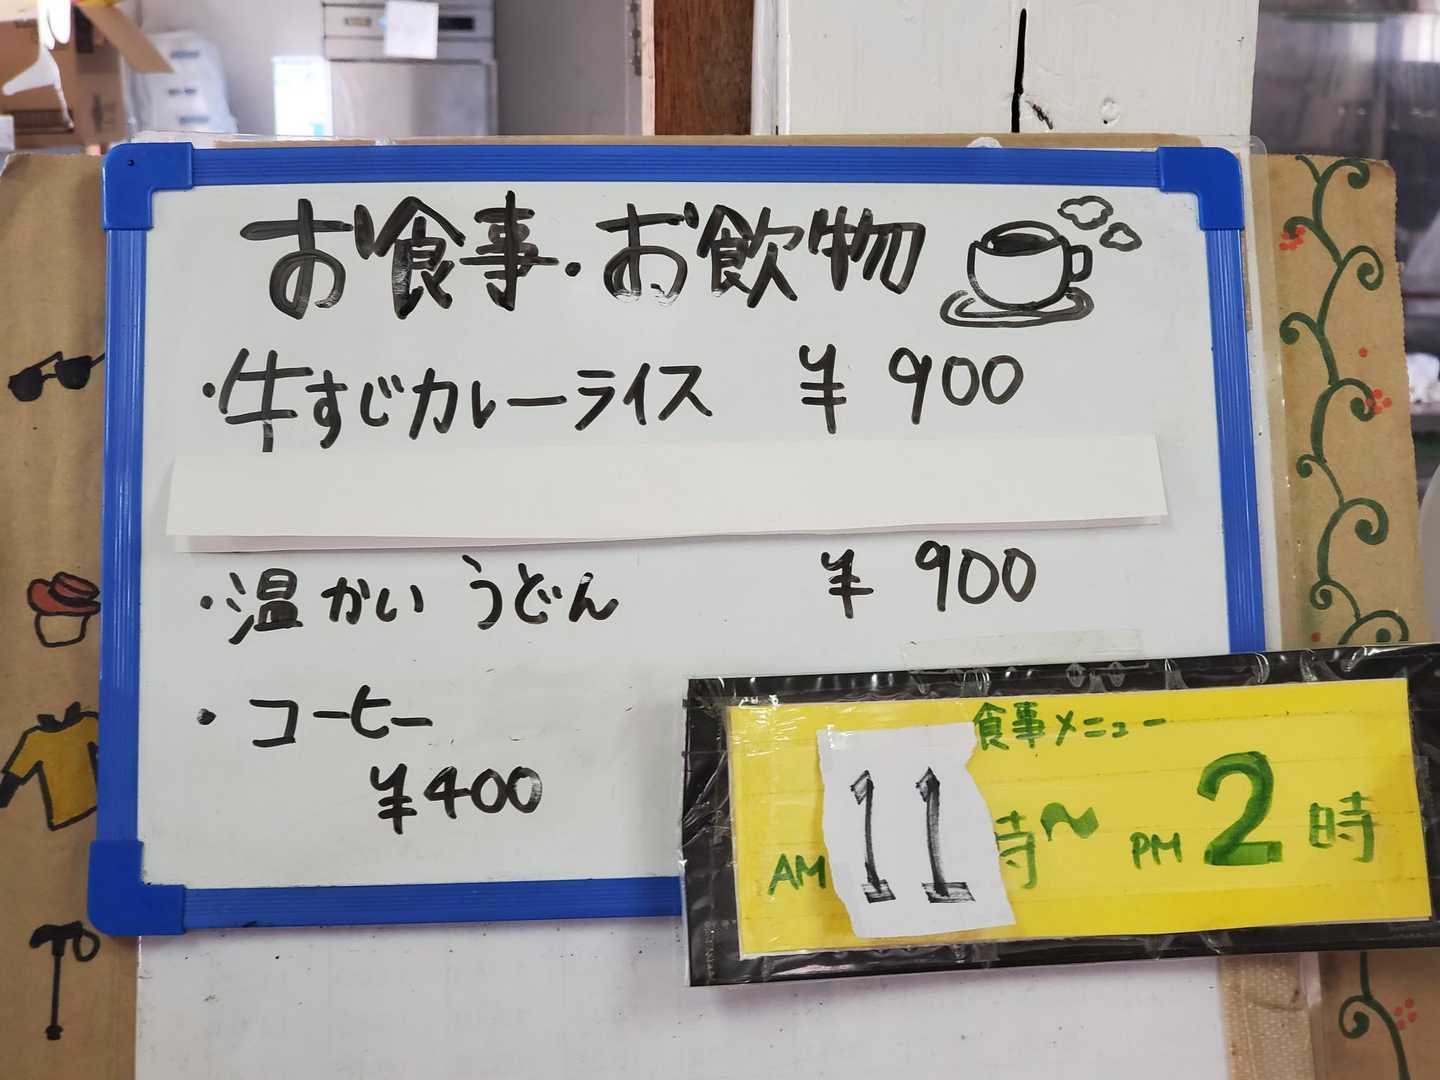 お食事・お飲物
・牛すじカレーライス ¥900
・温かいうどん ¥900
・コーヒー
¥400
食事メニュー
AM 11時〜PM 2時